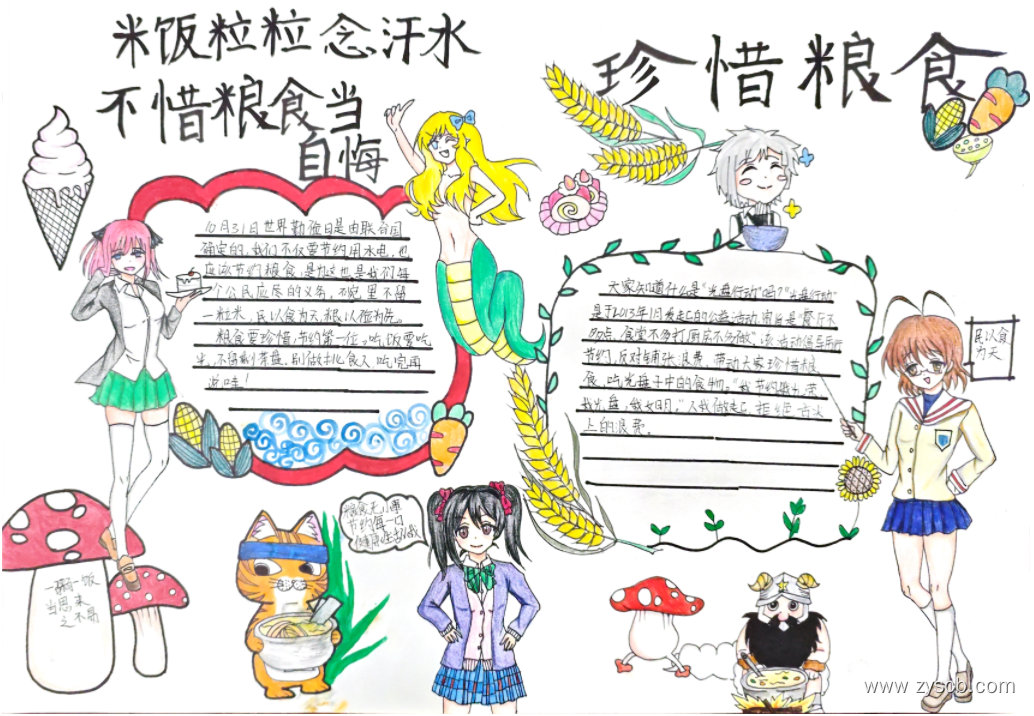 米饭粒粒念汗水
不惜粮食当
自悔
珍惜粮食
10月31日世界勤俭日是由联合国
确定的,我们不仅要节约用水电,也
应该节约粮食,是这也是我们每
个公民应尽的义务,不留
一粒米,民以食为天,根以俭为先。
粮食要珍惜,节约第一位,吃饭要吃
光,不留剩菜盘,别做挑食人,吃完再
说哇!
大家知道什么是“光盘行动”吗?“光盘行动”
是于2013年1月发起的公益活动,宗旨是餐厅不
多点,食堂不多打,厨房不多做”。该活动倡导厉行
节约,反对铺张浪费,带动大家珍惜粮
食,吃光盘子中的食物。
上的浪费。
民以食
为天
粮食无小事
节约每一口
一粥一饭
当思来
之不易
www.zyscb.com